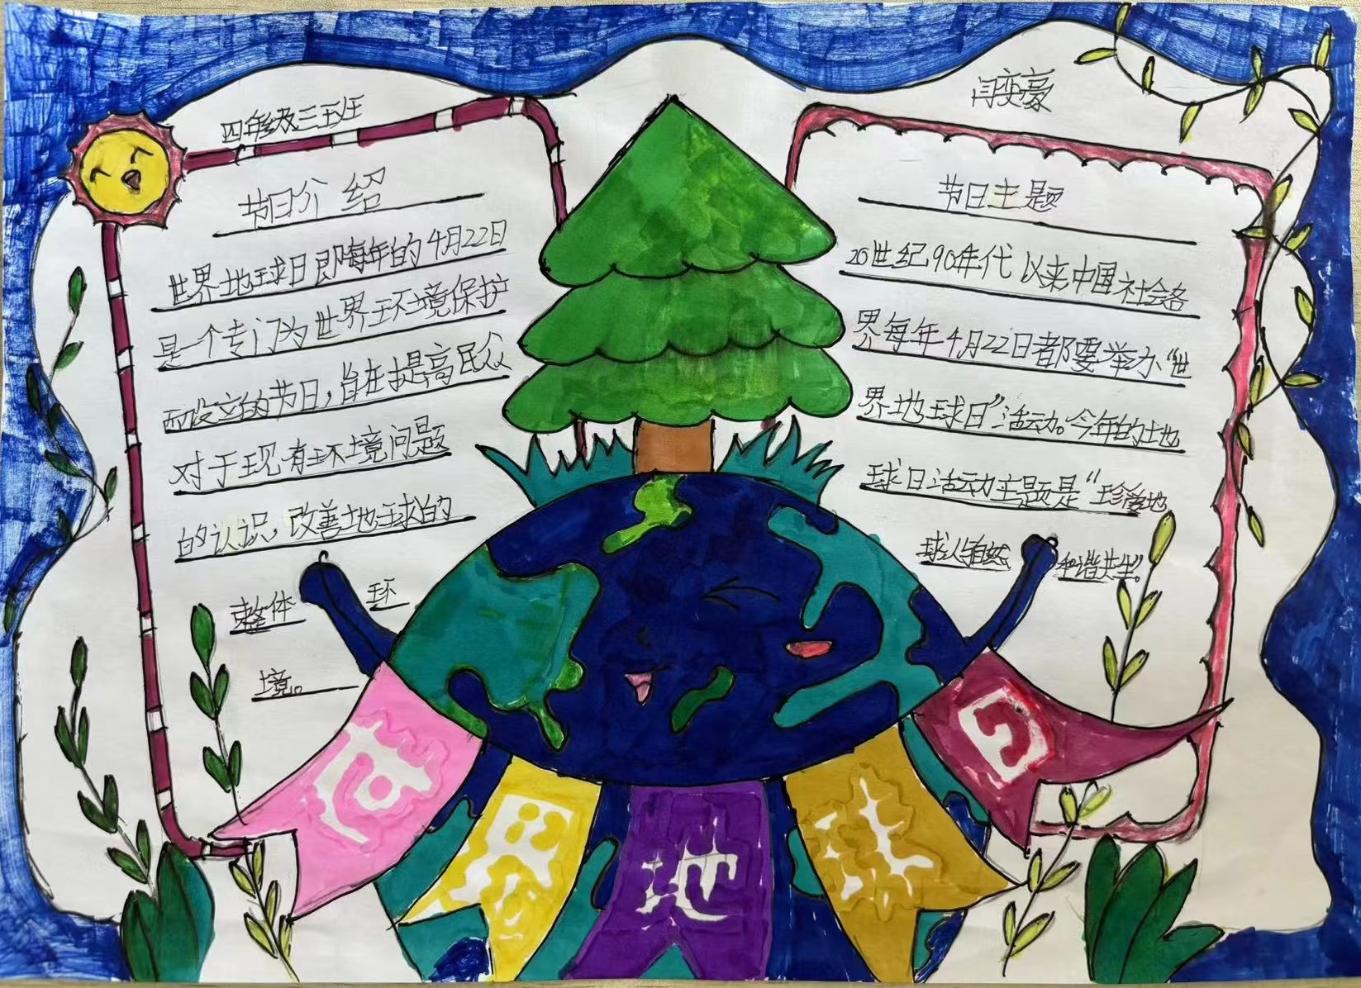 四年级三班
节日介绍
世界地球日即每年的4月22日
是一个专门为世界环境保护
而设立的节日，旨在提高民众
对于现有环境问题
的认识，改善地球的
整体 环
境。
闫奕豪
节日主题
20世纪90年代以来中国社会各
界每年4月22日都要举办“世
界地球日”活动。今年的地
球日活动主题是“珍爱地
球人与自然 和谐共生”
世界地球日